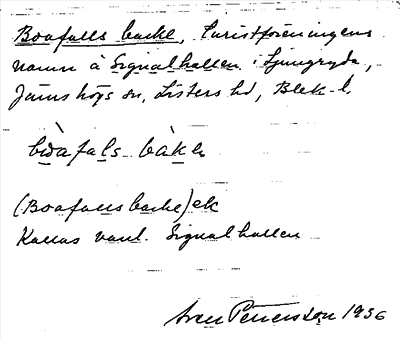 Boafalls backe, Turistföreningens
namn å Signalhallen i Ljungryda,
Jämshögs sn, Listers hd, Blek. l.
bòafals bàkɛ
(Boafalls backe) ek
Kallas vanl. Signalhallen
Sven Petersson 1936